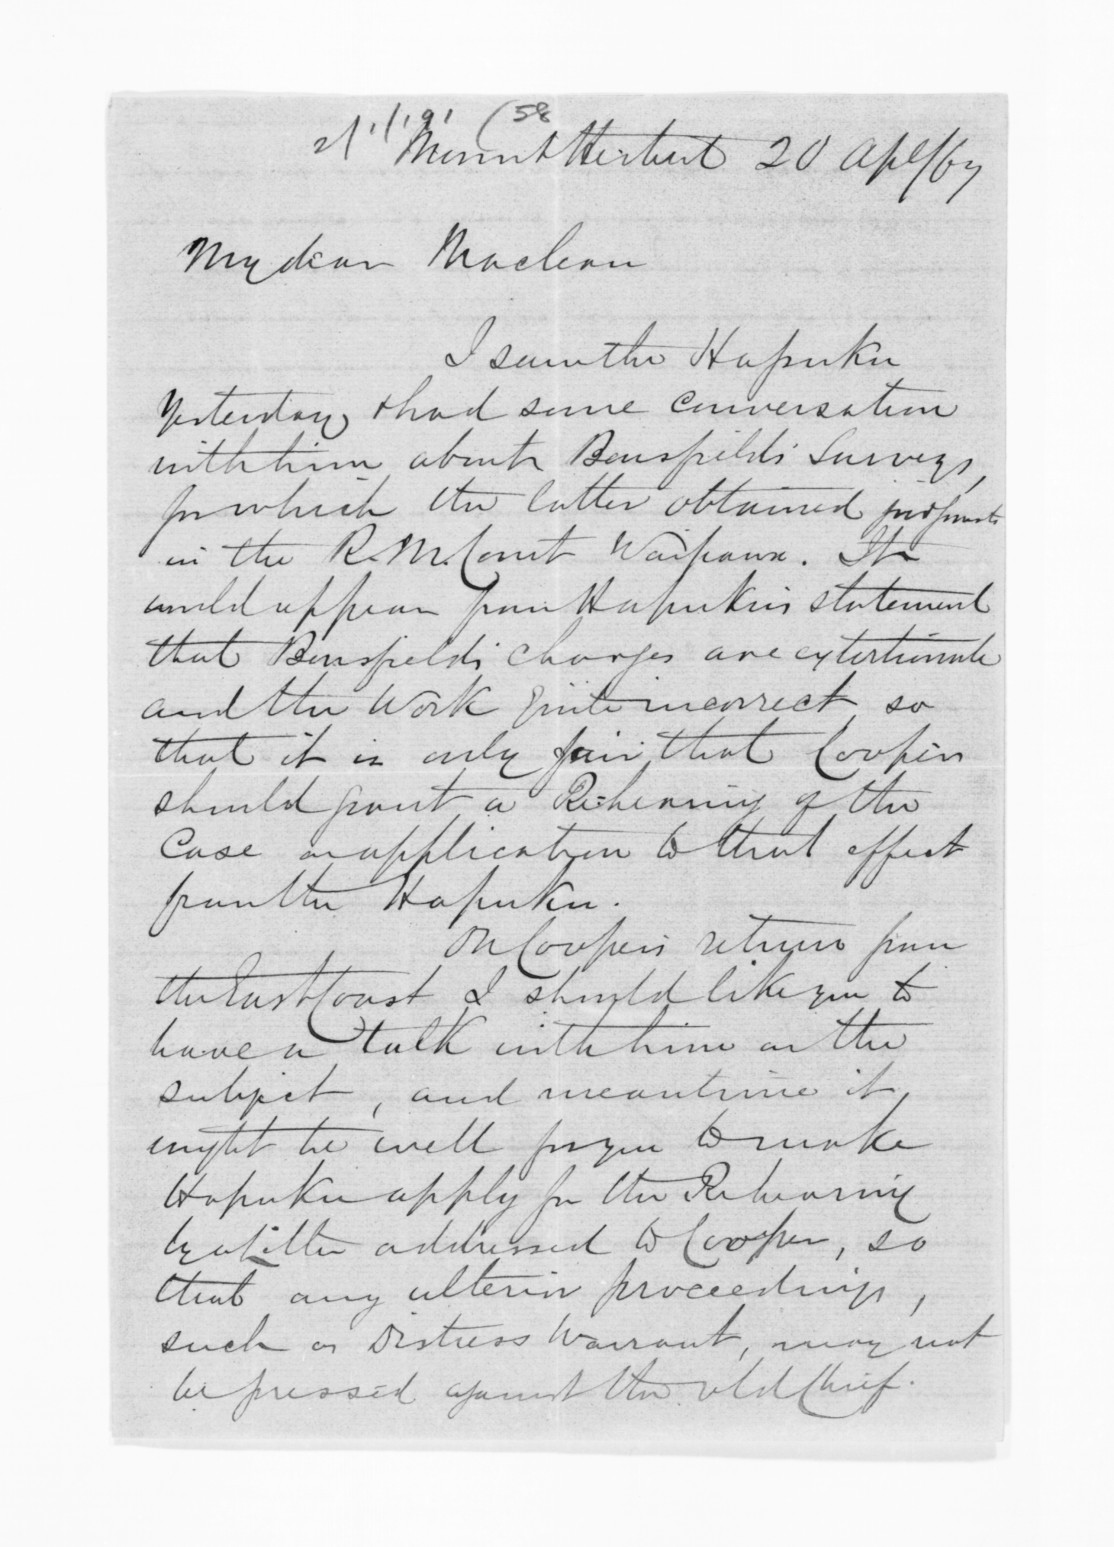 (58
Mount Herbert 20 Apl/67
My dear Maclean
I saw the Hapuku
Yesterday & had some conversation
with him about Bousfield's Surveys,
for which the latter obtained judgments
in the R. M. Court Waipawa. It
would appear from Hapuku's statement
that Bousfield's charges are extortionate
and the Work quite incorrect so
that it is only fair that Cooper
should grant a Rehearing of the
Case on application to that effect
from the Hapuku.
On Cooper's return from
the East Coast I should like you to
have a talk with him on the
subject, and meantime it
might be well for you to make
Hapuku apply for the Rehearing
by a Letter addressed to Cooper, so
that any ulterior proceedings,
such as Distress Warrant, may not
be pressed against the old Chief.